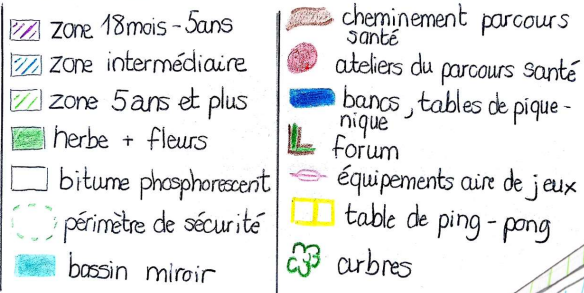 zone 18mois-5ans
zone intermédiaire
zone 5ans et plus
herbe + fleurs
bitume phosphorescent
périmètre de sécurité
bassin miroir
cheminement parcours
santé
ateliers du parcours santé
bancs, tables de pique-
nique
forum
équipements aire de jeux
table de ping-pong
arbres